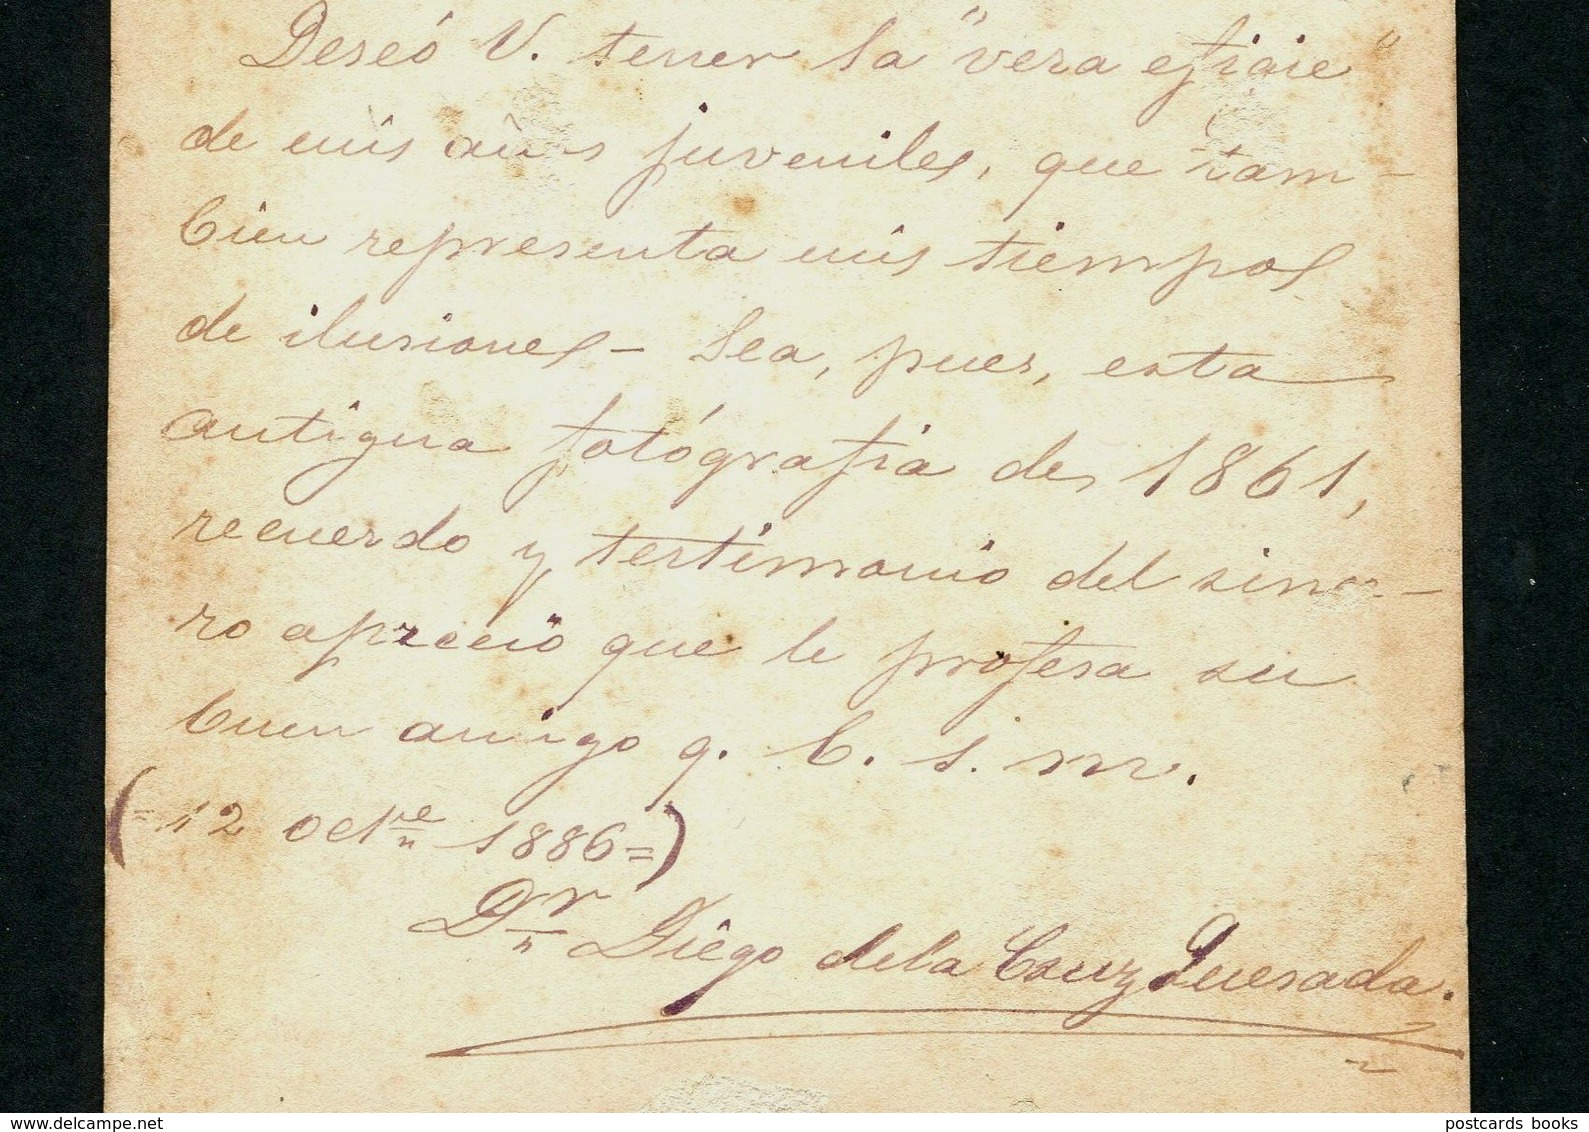 Deseó V. tener la "vera efigie"
de mis años juveniles, que tam-
bien representa mis tiempos
de ilusiones - Sea, pues, esta
antigua fotógrafia de 1861,
recuerdo y testimonio del since-
ro aprecio que le profesa su
buen amigo q. b. s. m.
(= 12 octre 1886 =)
Dr Diego de la Cruz Quesada.
www.delcampe.net
postcards books